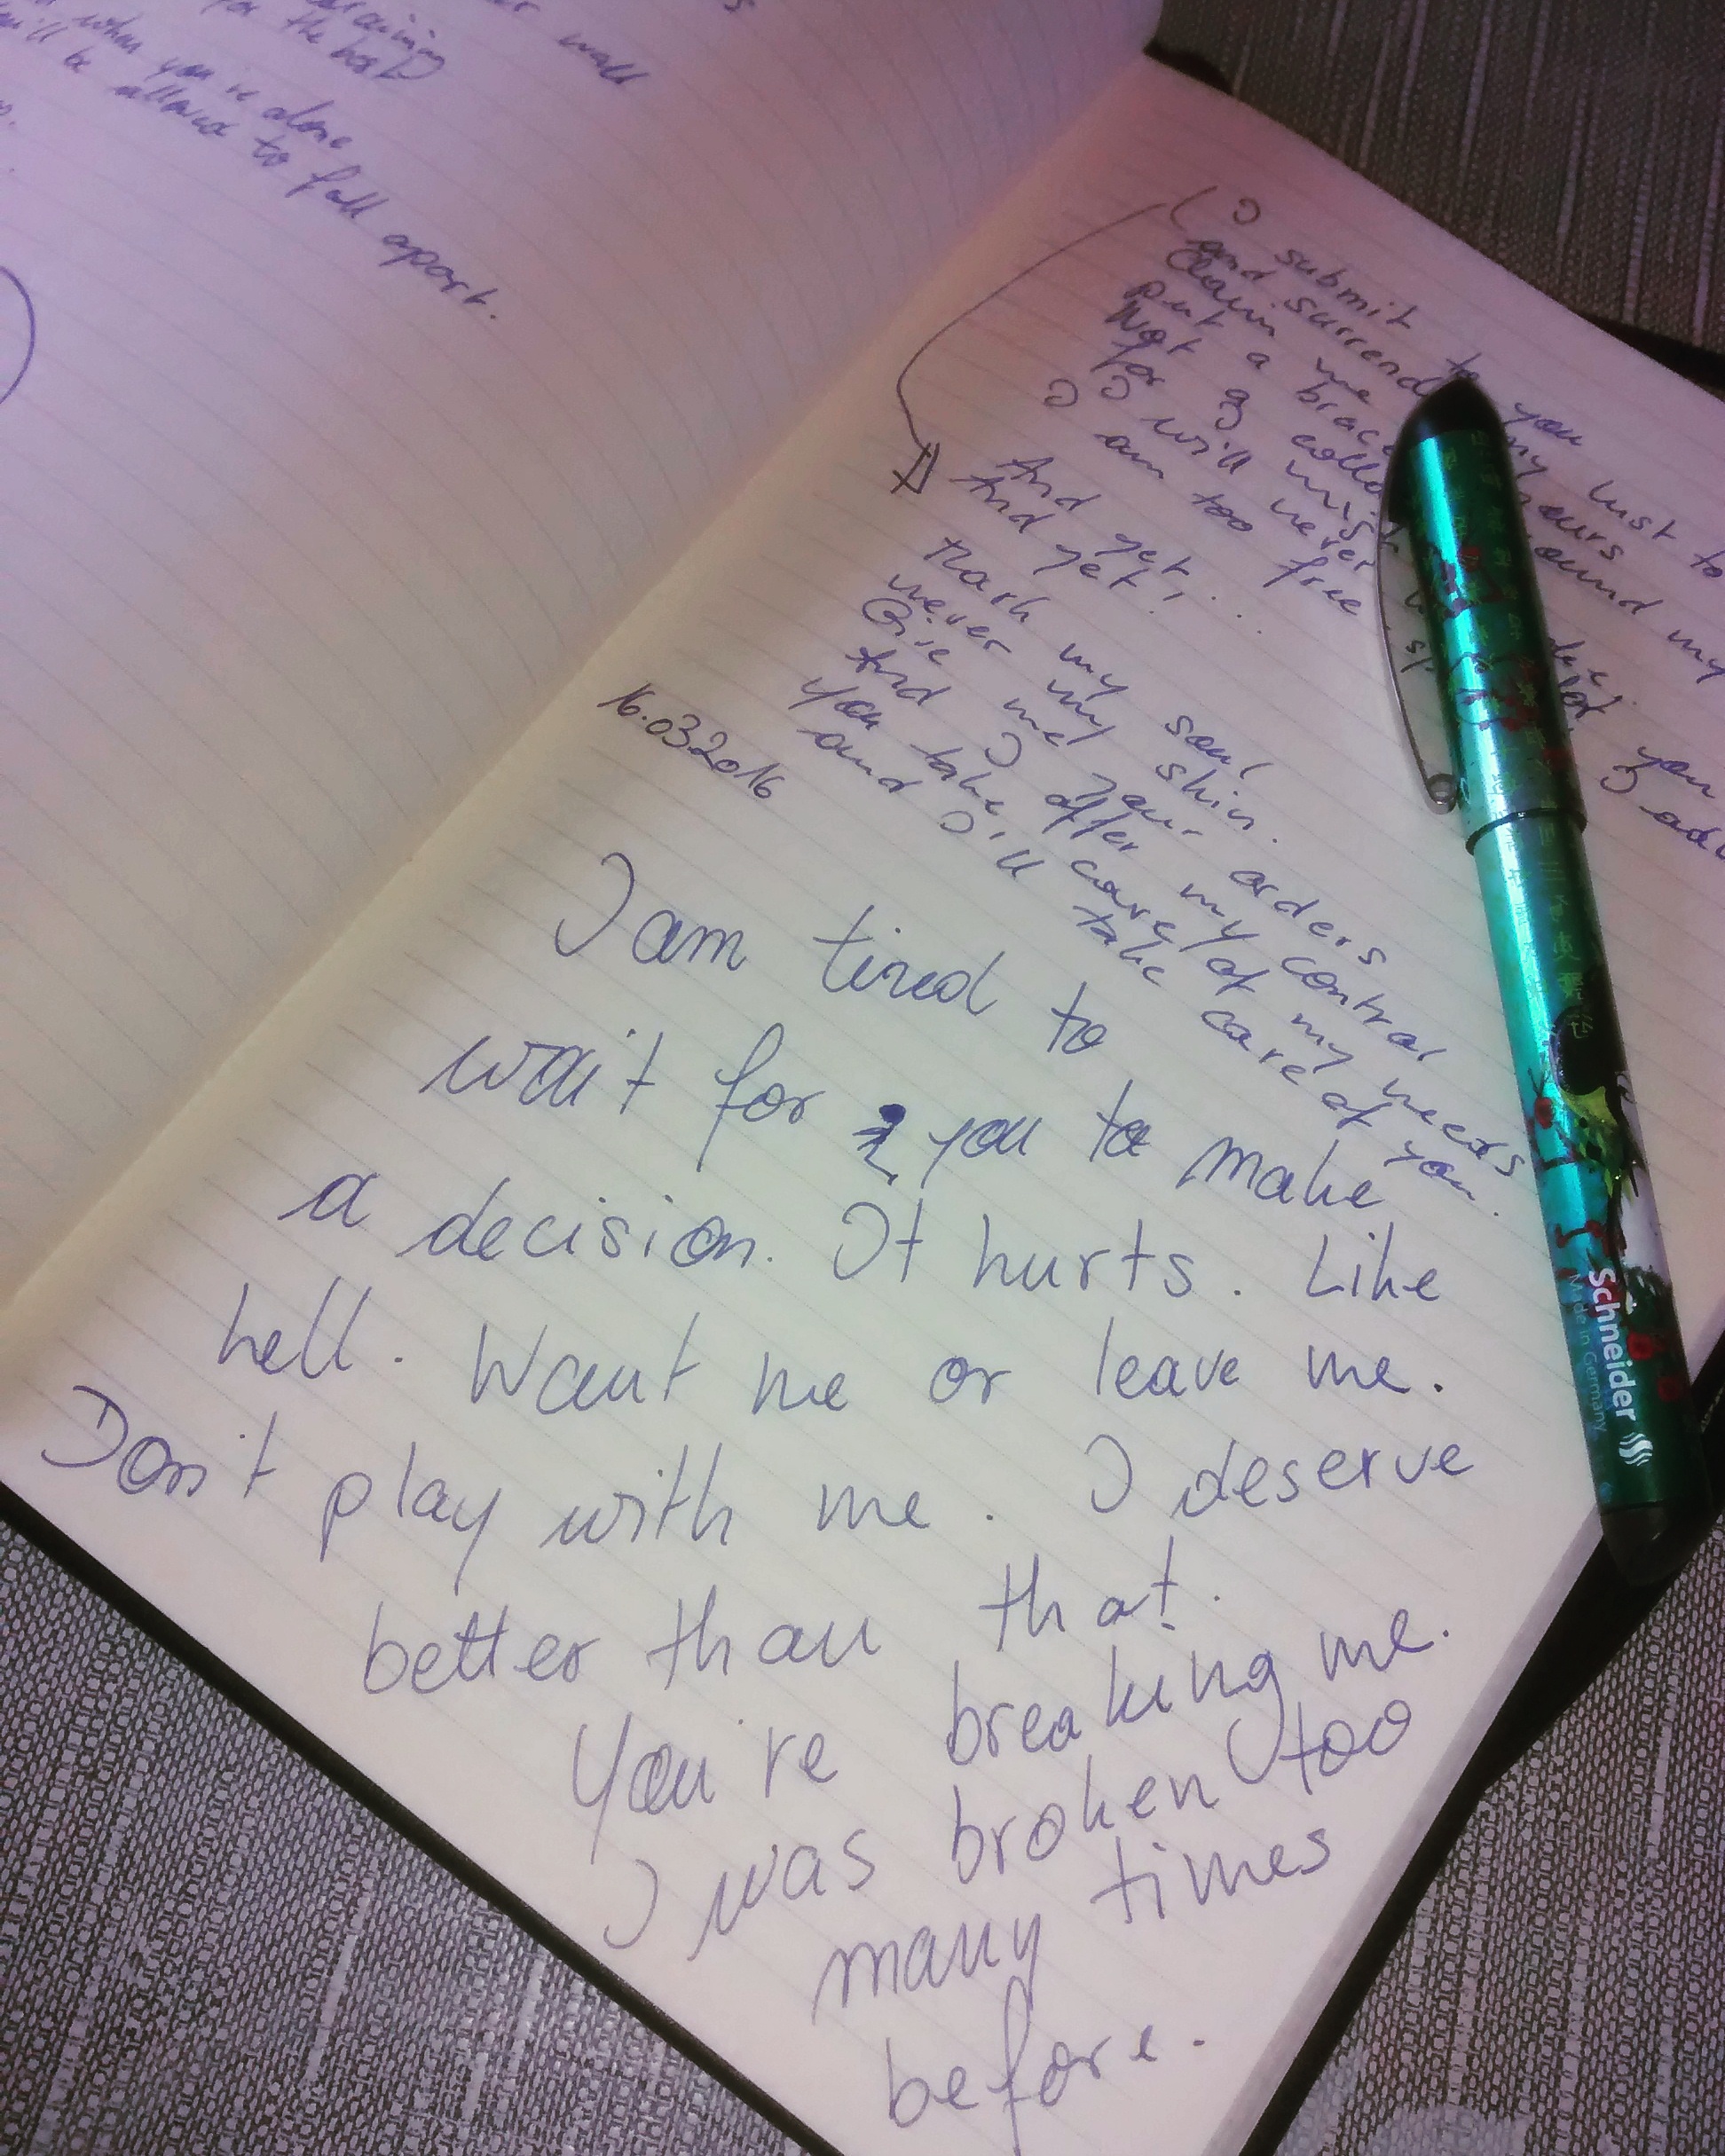 wall
for the best
when you're alone
will be allowed to fall apart.
I submit to you
and surrend my lust to
Claim me yours
put a brac ound my
Not a coll
for I will never
I am too free
And yet, ...
And yet!
Mark my soul
never my skin.
Give me your orders
And I offer my control
You take care of my needs
and I'll take care of you.
16.03.2016
I am tired to
wait for you to make
a decision. It hurts. Like
hell. Want me or leave me.
Don't play with me. I deserve
better than that.
You're breaking me.
I was broken too
many times
before.
Schneider
Made in Germany